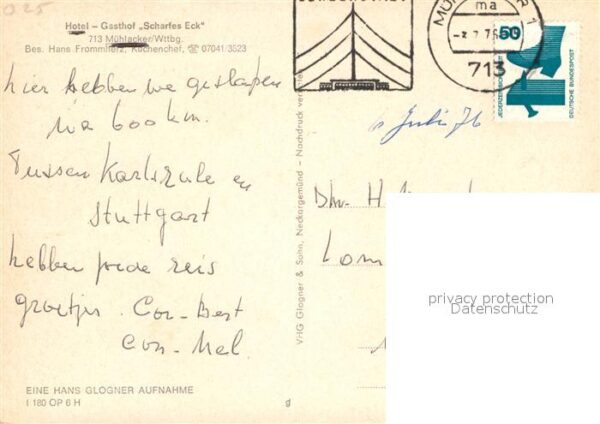 025
Hotel - Gasthof „Scharfes Eck"
713 Mühlacker/Wttbg.
Bes. Hans Frommherz, Küchenchef, ☏ 07041/3523
hier hebben we geslapen
na 600 km.
Tussen Karlsrule en
Stuttgart
hebben goede reis
groetjes. Cor-Best
Con-Nel.
EINE HANS GLOGNER AUFNAHME
I 180 OP 6 H
g
VHG Glogner & Sohn, Neckargemünd - Nachdruck
ma
713
50
JEDERZEIT
DEUTSCHE BUNDESPOST
Juli 76
Dhr. H
Lom
privacy protection
Datenschutz